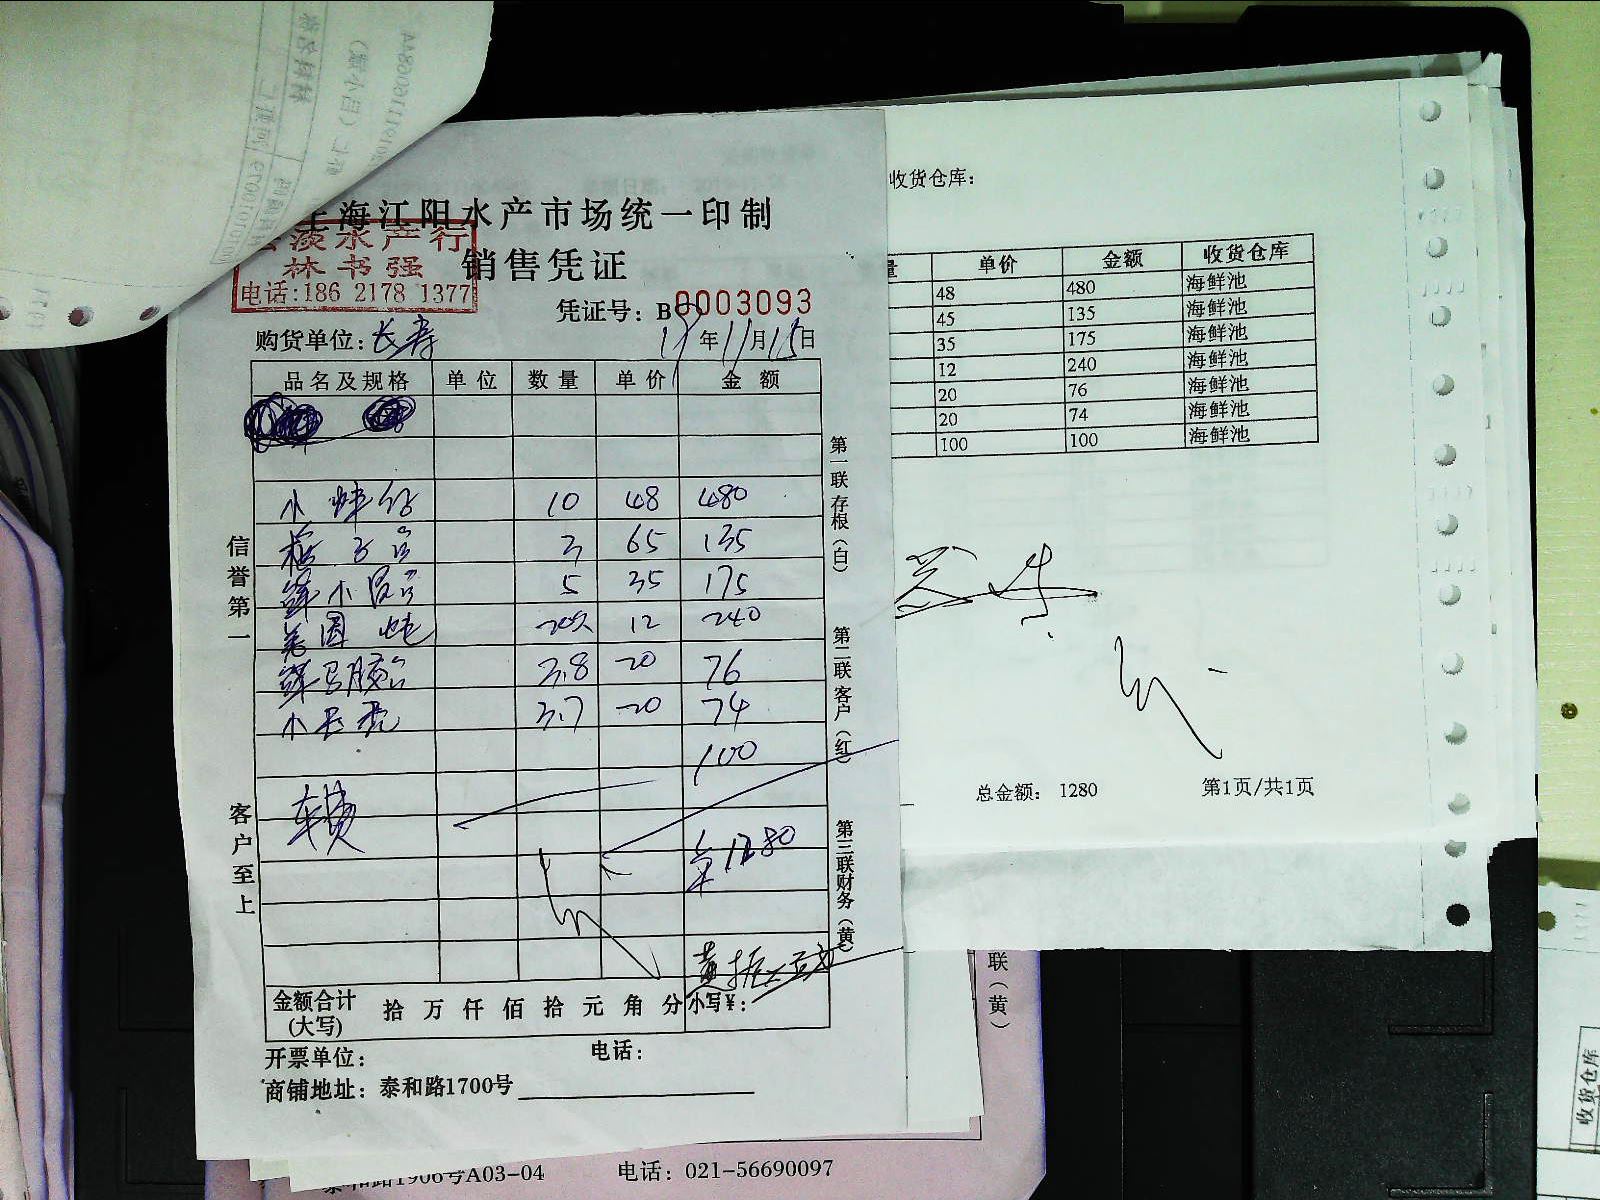 上海江阳水产市场统一印制
淡水产行
林书强
电话:186 2178 1377
销售凭证
凭证号: B0003093
购货单位: 长寿
年11月15日
品名及规格 单位 数量 单价 金额
小 10 48 480
3 65 135
鲜小 5 35 175
12 240
鲜 3.8 20 76
小 3.7 20 74
100
车费
1280
金额合计(大写) 拾万仟佰拾元角分 小写¥:
开票单位: 电话:
商铺地址: 泰和路1700号
信誉第一
客户至上
第一联存根(白)
第二联客户(红)
第三联财务(黄)
收货仓库:
量 单价 金额 收货仓库
48 480 海鲜池
45 135 海鲜池
35 175 海鲜池
12 240 海鲜池
20 76 海鲜池
20 74 海鲜池
100 100 海鲜池
总金额: 1280 第1页/共1页
联(黄)
泰和路1906号A03-04 电话: 021-56690097
收货仓库